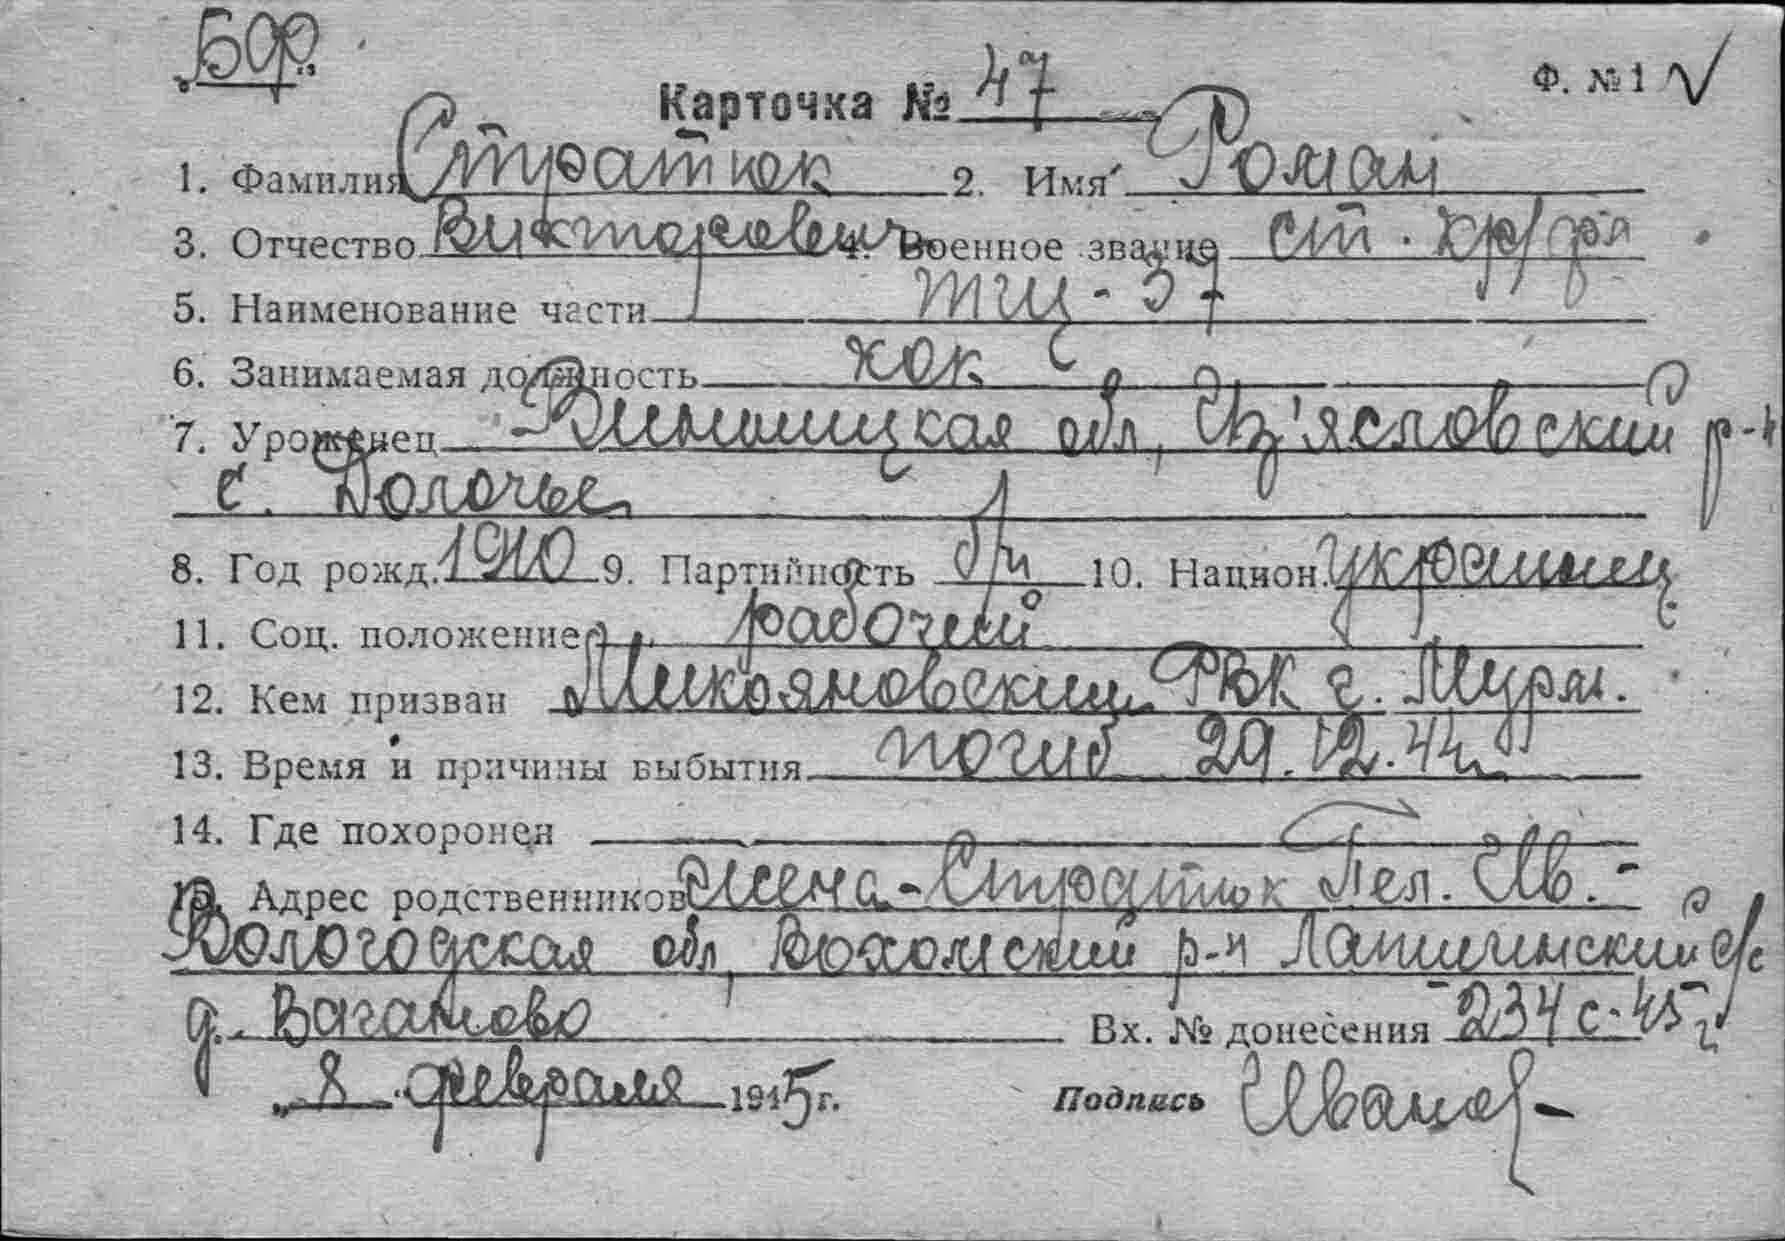 "БФ"
Ф. № 1 √
Карточка № 47
1. Фамилия Стратюк 2. Имя Роман
3. Отчество Викторович 4. Военное звание ст. кр/фл
5. Наименование части ТЩ-37
6. Занимаемая должность кок
7. Уроженец Винницкая обл, Из'ясловский р-н
с. Долочье
8. Год рожд. 1910 9. Партийность б/п 10. Национ. украинец
11. Соц. положение рабочий
12. Кем призван Микояновским РВК г. Мурм.
13. Время и причины выбытия погиб 29.12.44г
14. Где похоронен
15. Адрес родственников Жена - Стратюк Пел. Ив. -
Вологодская обл, Вохомский р-н Лапшинский с/с
д. Ваганово Вх. № донесения 234с-45г
"8" февраля 1945 г. Подпись Иванов